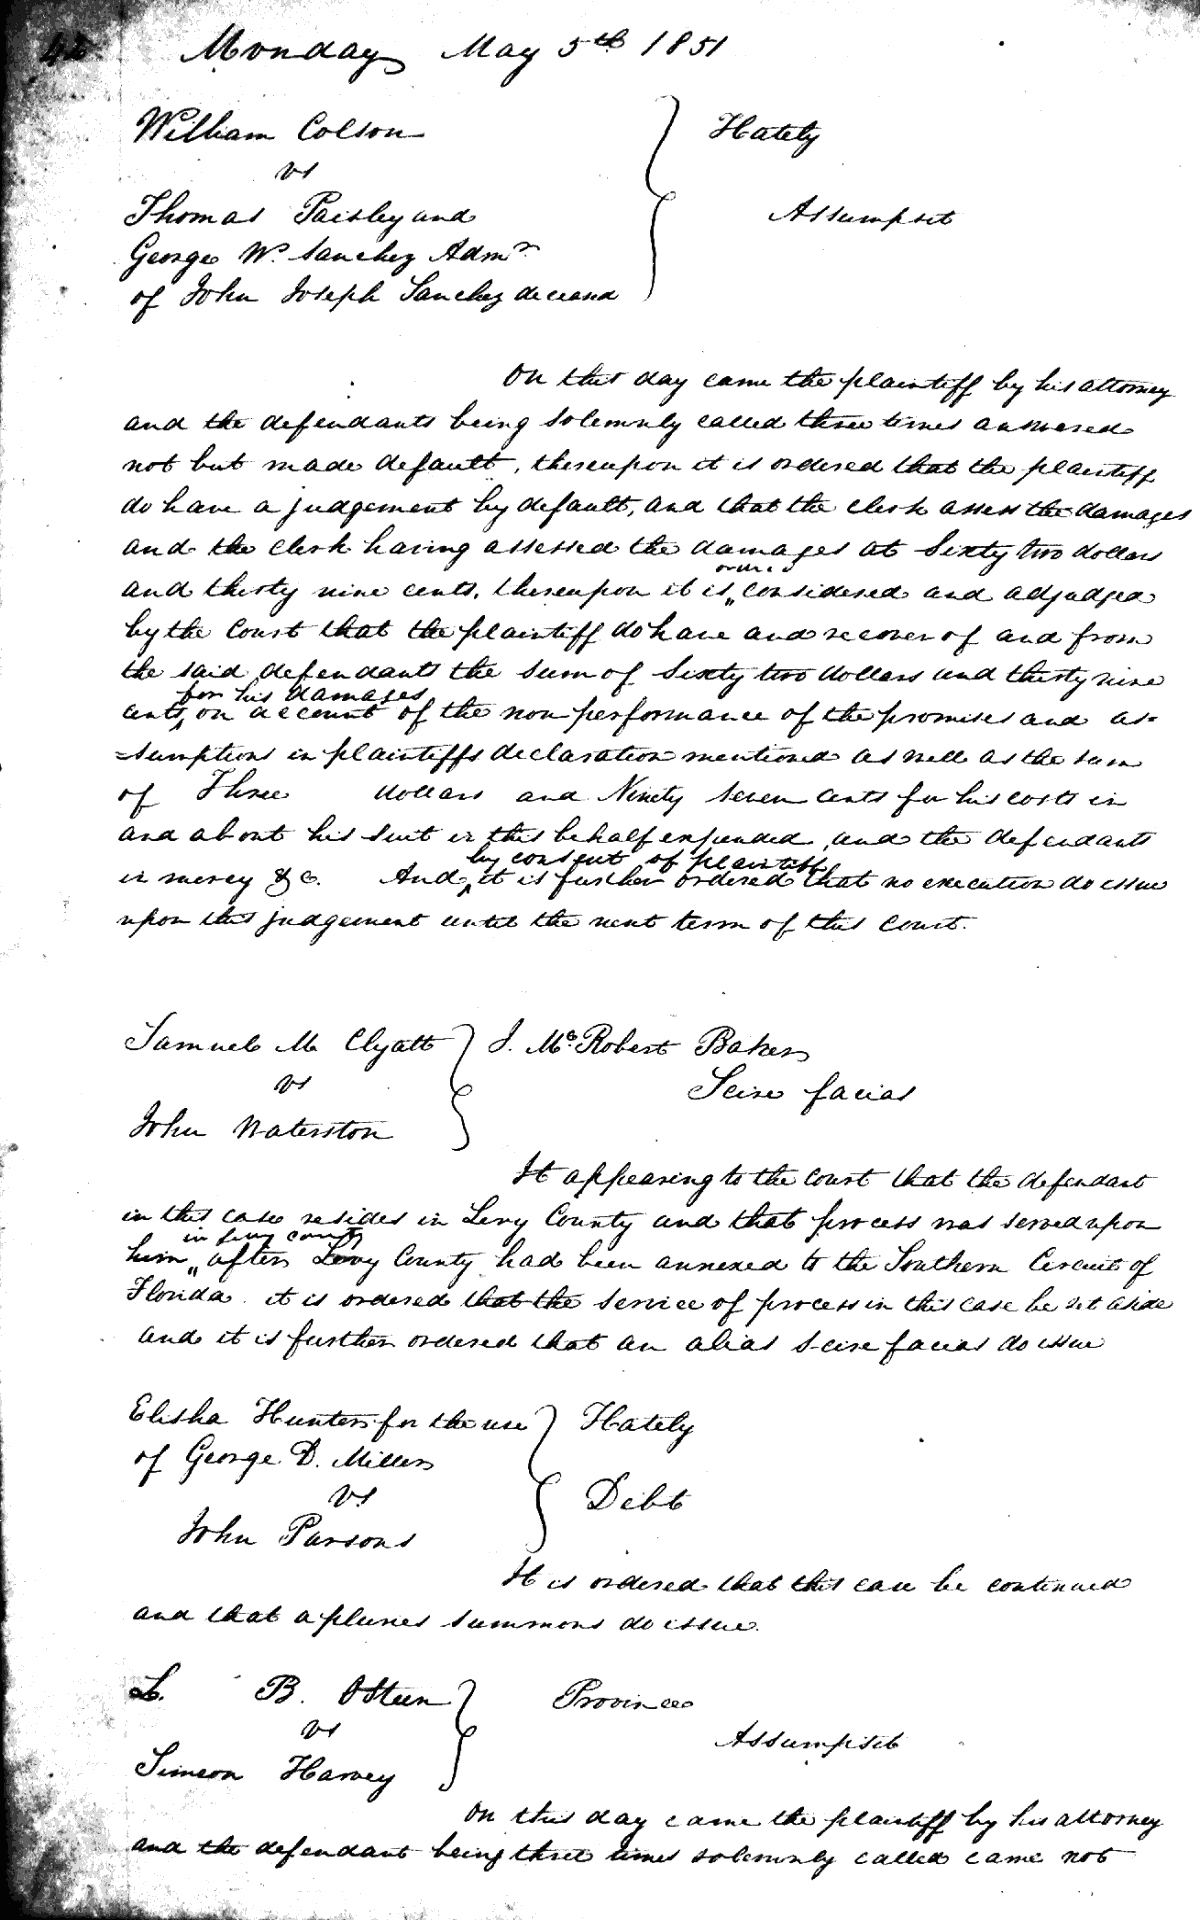 Monday May 5th 1851
William Colson } Hately
vs
Thomas Paisley and Assumpsit
George W. Sanchez Admr
of John Joseph Sanchez deceasd
On this day came the plaintiff by his attorney
and the defendants being solemnly called three times answered
not but made default, thereupon it is ordered that the plaintiff
do have a judgement by default, and that the clerk assess the damages
and the clerk having assessed the damages at Sixty two dollars
and thirty nine cents, thereupon it is ordered considered and adjudged
by the Court that the plaintiff do have and recover of and from
the said defendants the sum of Sixty two dollars and thirty nine
for his damages
cents, on account of the non performance of the promises and as=
=sumptions in plaintiffs declaration mentioned as well as the sum
of Three dollars and Ninety Seven cents for his costs in
and about his suit in this behalf expended, and the defendants
by consent of plaintiff
in mercy &c. And it is further ordered that no execution do issue
upon this judgement until the next term of this Court.
Samuel M Clyatt } J. Mc.Robert Baker
vs Scire facias
John Waterston
It appearing to the court that the defendant
in this case resides in Levy County and that process was served upon
in Levy County
him after Levy County had been annexed to the Southern Circuit of
Florida it is ordered that the service of process in this case be set aside
and it is further ordered that an alias Scire facias do issue
Elisha Hunter for the use } Hately
of George D. Miller
vs Debt
John Parsons
It is ordered that this case be continued
and that a pluries summons do issue.
L. B. OSteen } Province
vs Assumpsit
Simeon Harvey
On this day came the plaintiff by his attorney
and the defendant being three times solemnly called came not